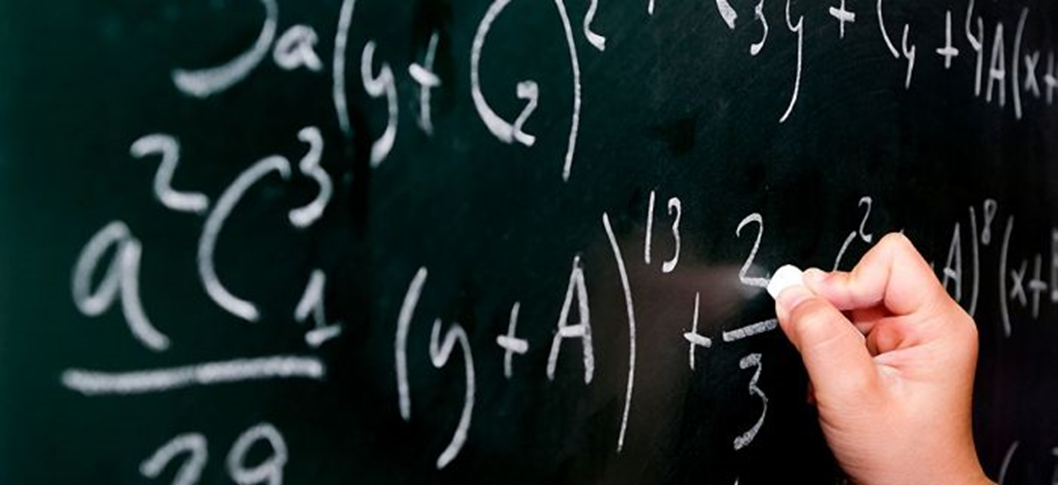 a(y+C₂)² 3y+(y+4A(x+
a²C₁³/29 (y+A)¹³+2/3 (² A)⁸(x+